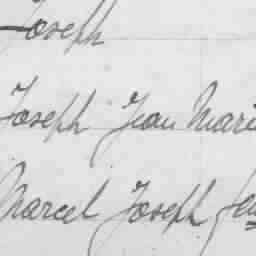 Joseph
Joseph Jean Mari
Marcel Joseph